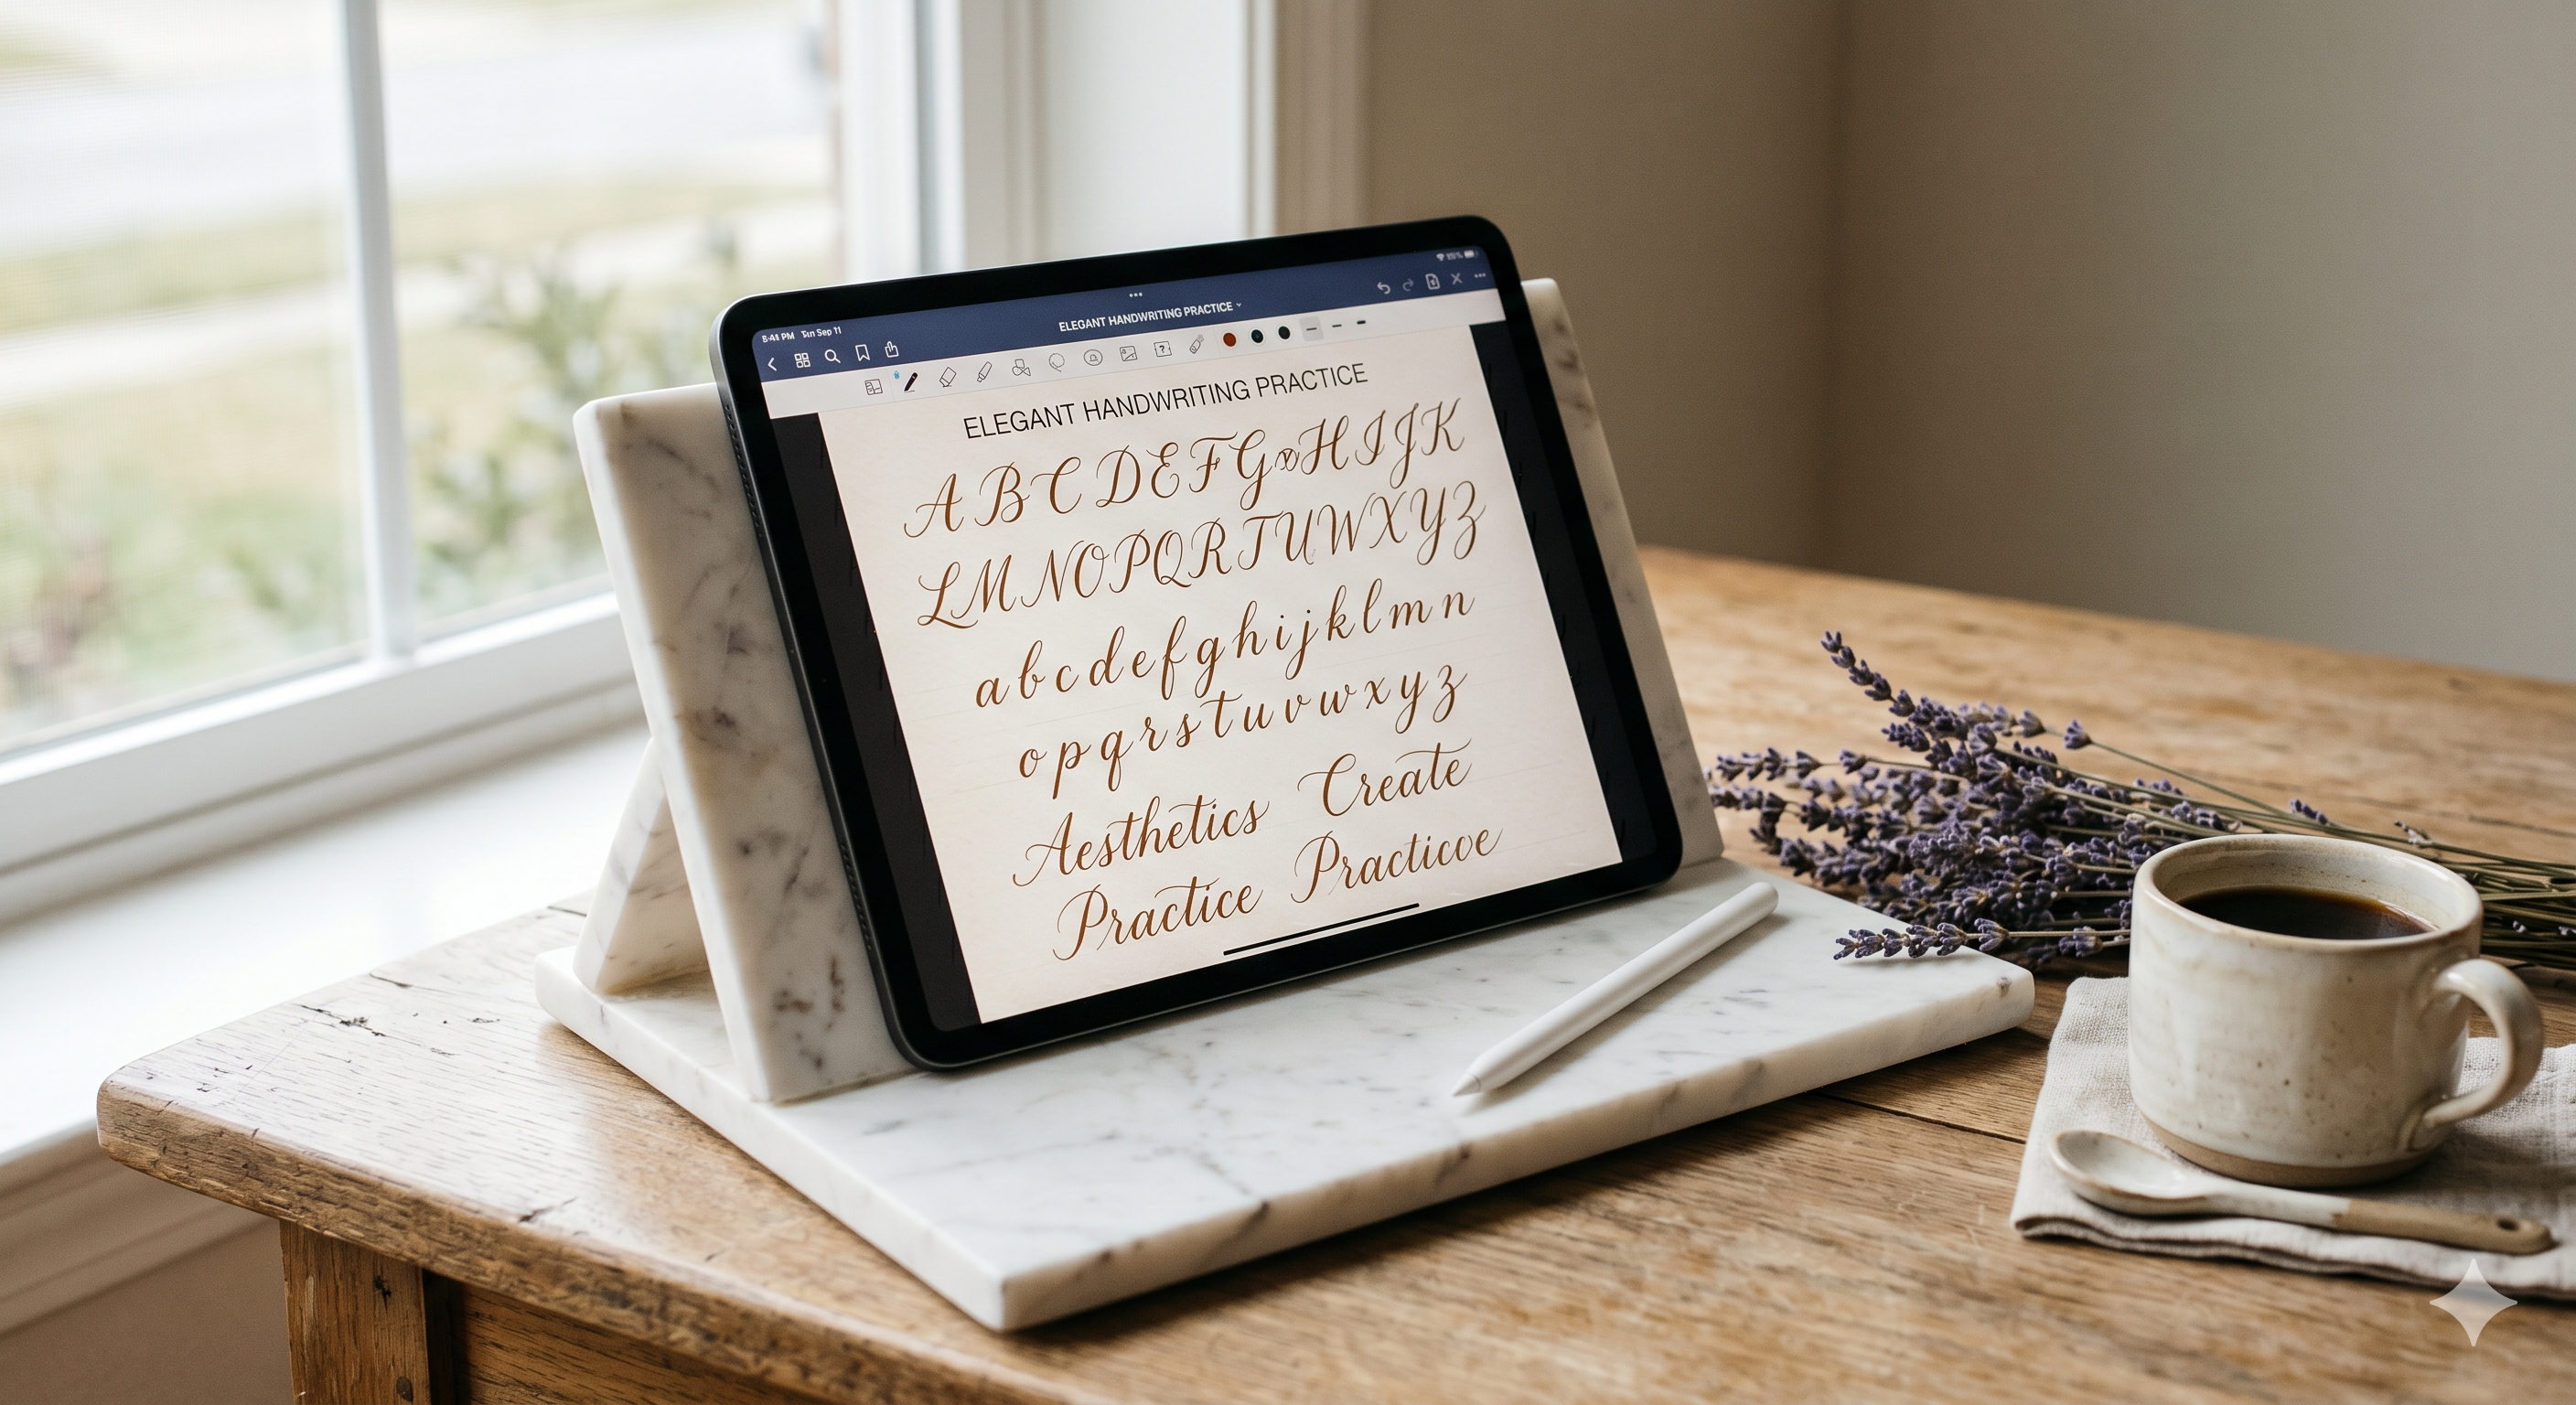 5:41 PM Tun Sep 11
ELEGANT HANDWRITING PRACTICE
ELEGANT HANDWRITING PRACTICE
A B C D E F G x H I J K
L M N O P Q R T U W X Y Z
a b c d e f g h i j k l m n
o p q r s t u v w x y z
Aesthetics Create
Practice Practicoe